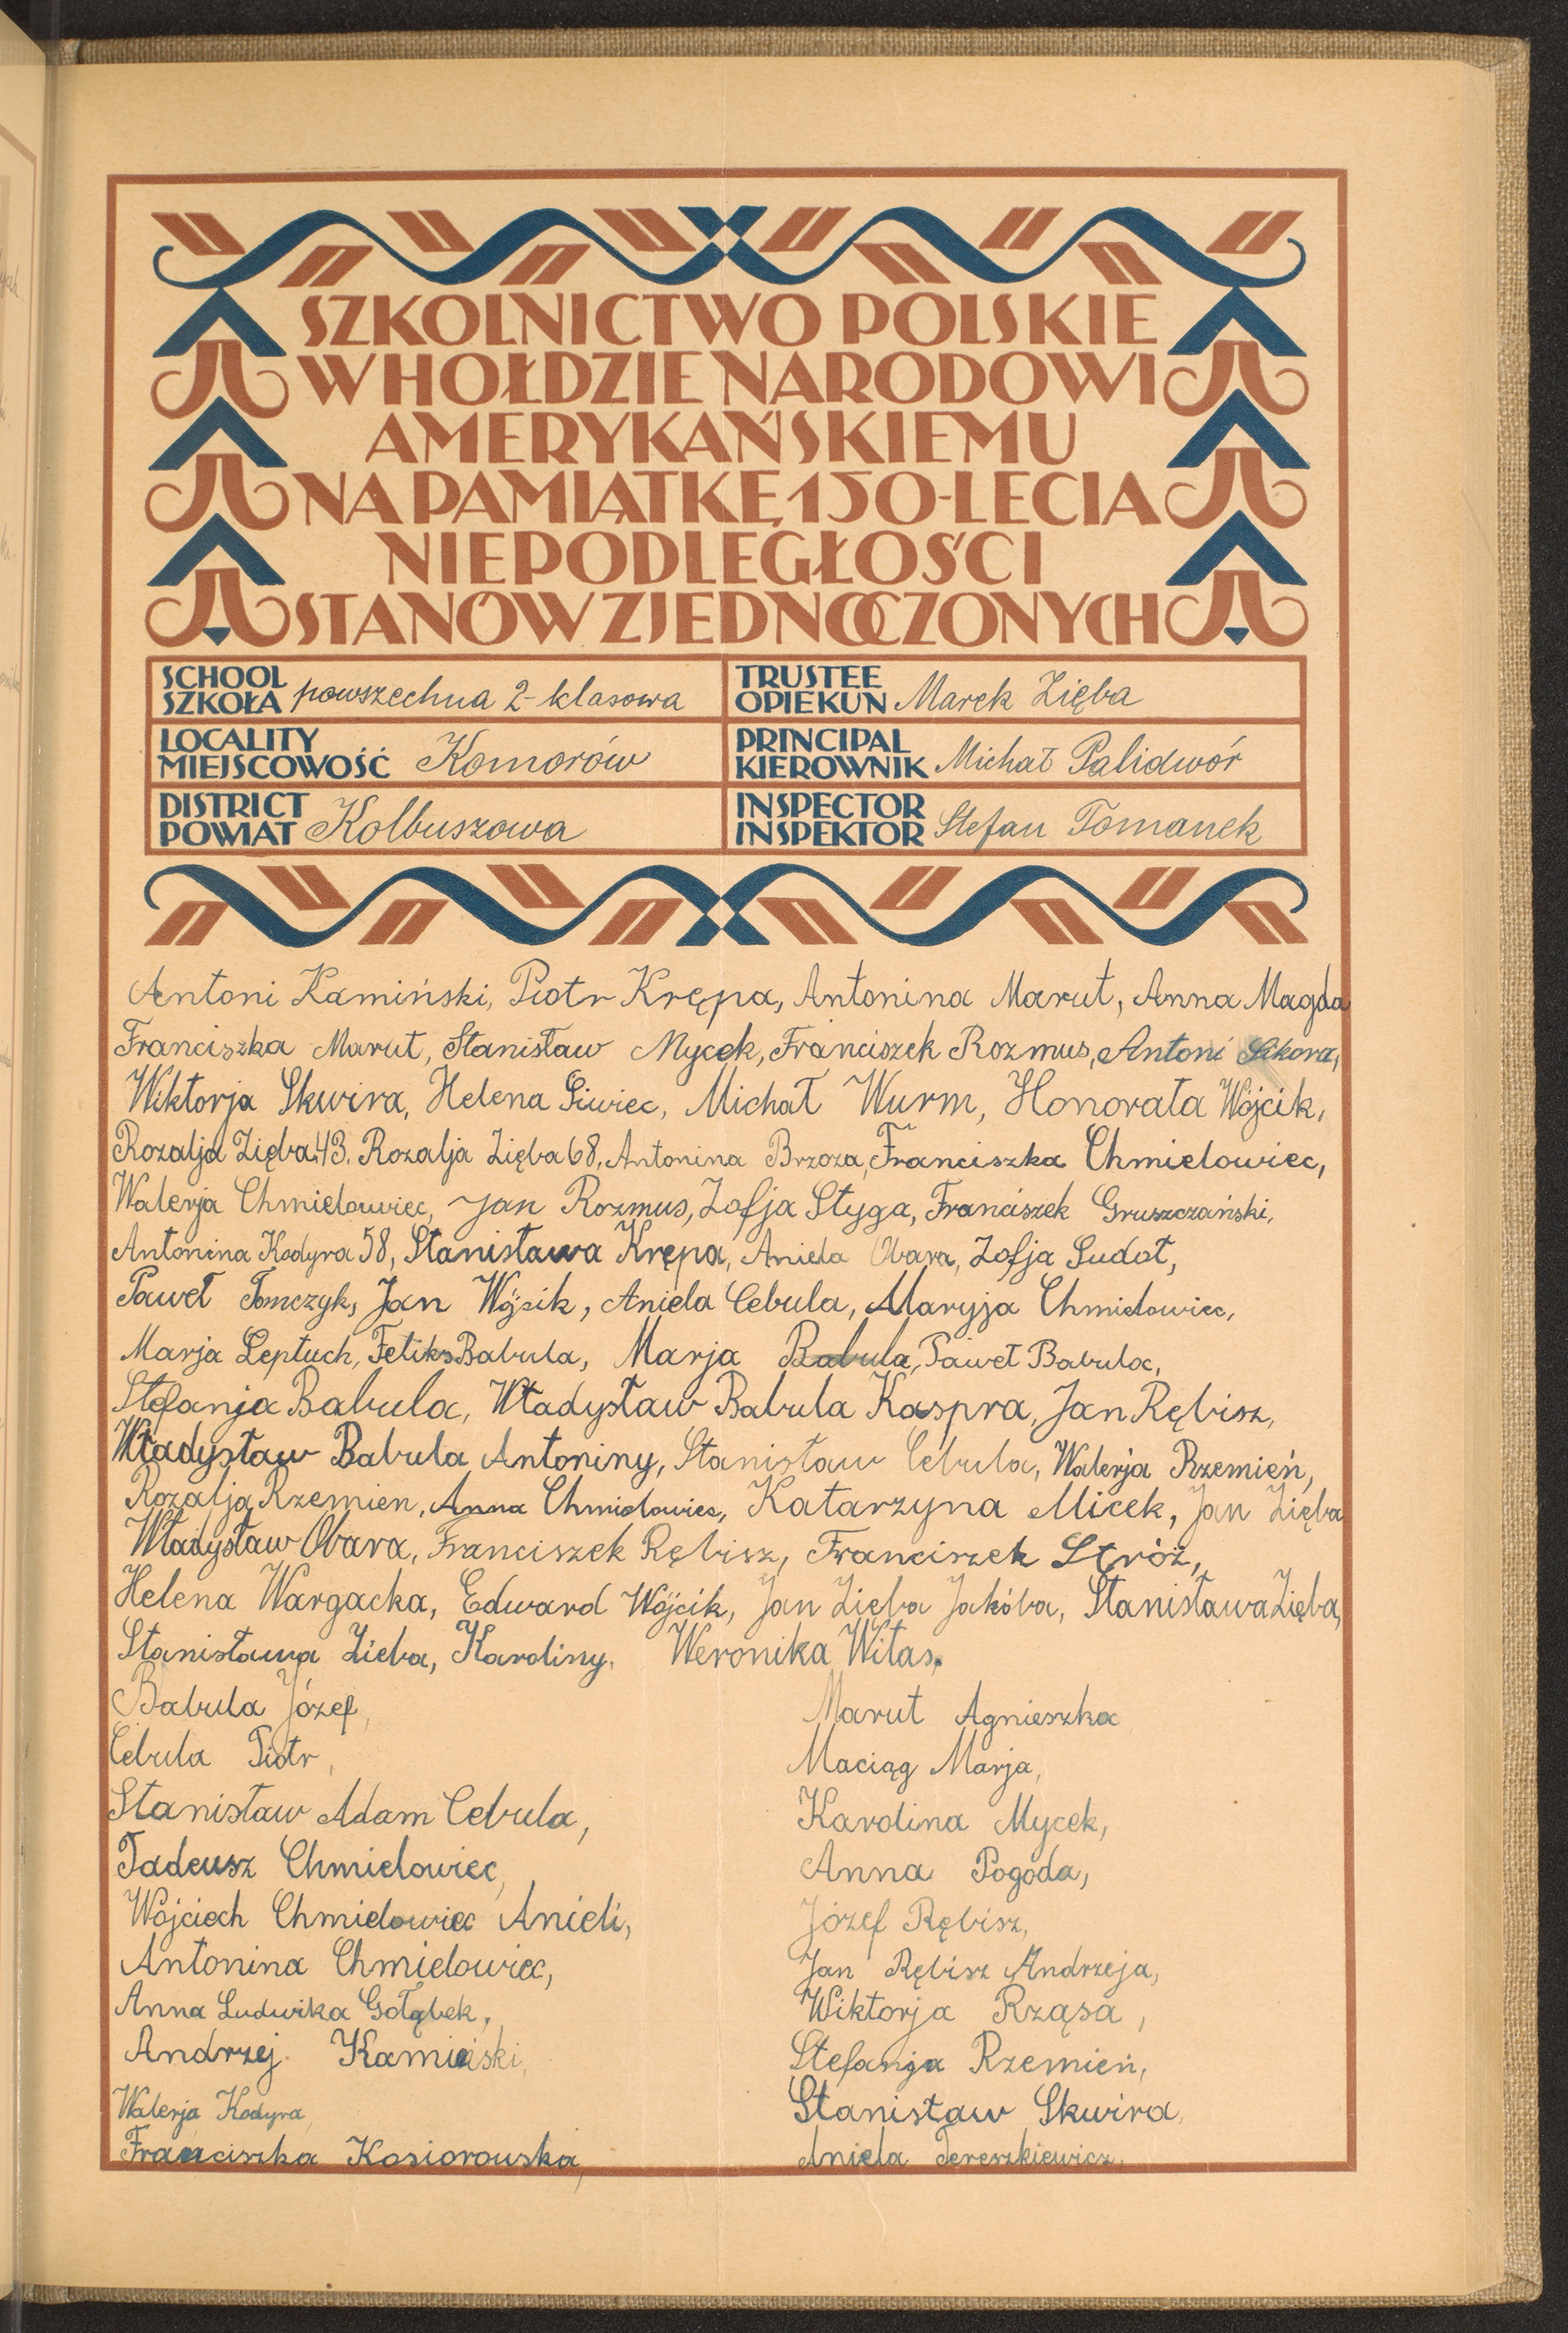 SZKOLNICTWO POLSKIE
W HOŁDZIE NARODOWI
AMERYKAŃSKIEMU
NA PAMIĄTKĘ 150-LECIA
NIEPODLEGŁOŚCI
STANÓW ZJEDNOCZONYCH
SCHOOL
SZKOŁA powszechna 2-klasowa
TRUSTEE
OPIEKUN Marek Zięba
LOCALITY
MIEJSCOWOŚĆ Komorów
PRINCIPAL
KIEROWNIK Michał Palidwór
DISTRICT
POWIAT Kolbuszowa
INSPECTOR
INSPEKTOR Stefan Tomanek
Antoni Kamiński, Piotr Krępa, Antonina Marut, Anna Magda
Franciszka Marut, Stanisław Mycek, Franciszek Rozmus, Antoni
Wiktorja Skwira, Helena Siwiec, Michał Wurm, Honorata Wójcik,
Rozalja Zięba 43. Rozalja Zięba 68, Antonina Brzoza, Franciszka Chmielowiec,
Walerja Chmielowiec, Jan Rozmus, Zofja Styga, Franciszek Gruszczański,
Antonina Kodyra 58, Stanisława Krępa, Aniela Obara, Zofja Sudoł,
Paweł Tomczyk, Jan Wójcik, Aniela Cebula, Maryja Chmielowiec,
Marja Leptuch, Feliks Babula, Marja Babula, Paweł Babula,
Stefanja Babula, Władysław Babula Kaspra, Jan Rębisz,
Władysław Babula Antoniny, Stanisław Cebula, Walerja Rzemień,
Rozalja Rzemien, Anna Chmielowiec, Katarzyna Micek, Jan Zięba
Władysław Obara, Franciszek Rębisz, Franciszek Stróż,
Helena Wargacka, Edward Wójcik, Jan Zięba Jakóba, Stanisława Zięba,
Stanisława Zieba, Karoliny, Weronika Witas.
Babula Józef,
Cebula Piotr,
Stanisław Adam Cebula,
Tadeusz Chmielowiec,
Wojciech Chmielowiec Anieli,
Antonina Chmielowiec,
Anna Ludwika Gołąbek,
Andrzej Kamiński,
Walerja Kodyra,
Franciszka Kosiorowska,
Marut Agnieszka
Maciąg Marja,
Karolina Mycek,
Anna Pogoda,
Józef Rębisz,
Jan Rębisz Andrzeja,
Wiktorja Rząsa,
Stefanja Rzemień,
Stanisław Skwira,
Aniela Tereszkiewicz,